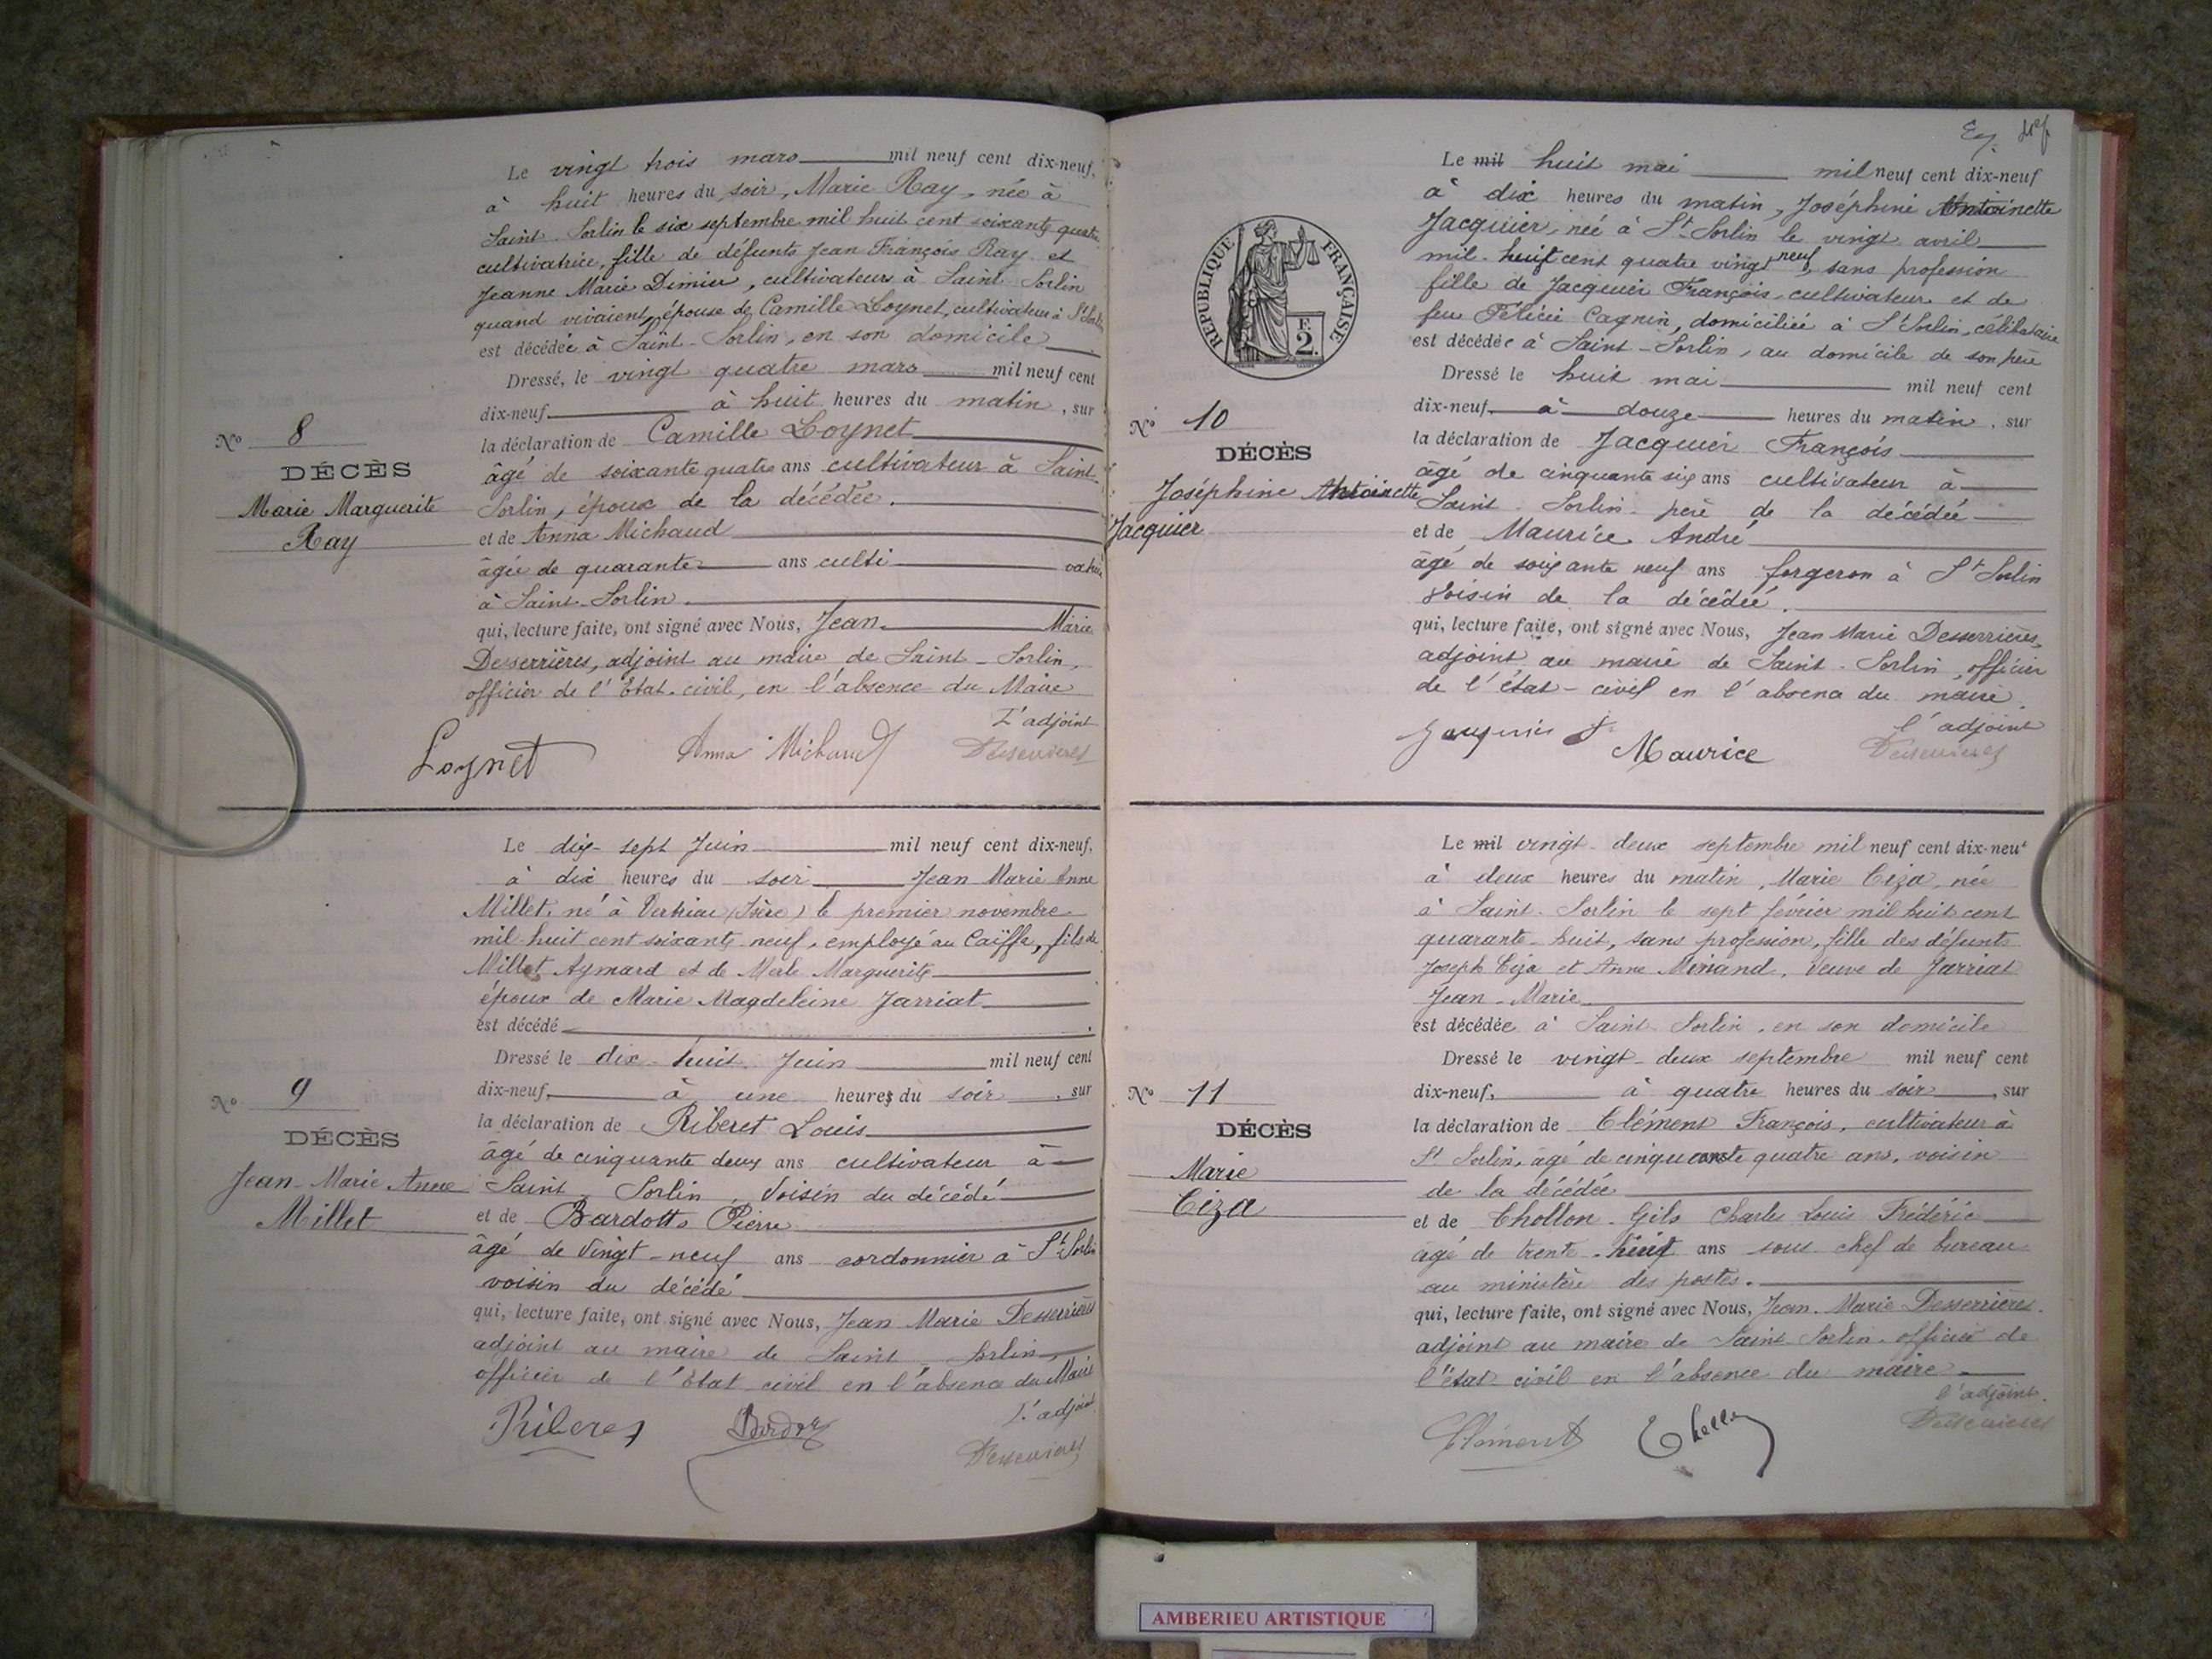 Le vingt trois mars mil neuf cent dix-neuf,
à huit heures du soir, Marie Ray, née à
Saint-Sorlin le six septembre mil huit cent soixante quatre
cultivatrice, fille de défunts Jean François Ray et
Jeanne Marie Dimier, cultivateurs à Saint-Sorlin
quand vivaient, épouse de Camille Loynet, cultivateur à St Sorlin
est décédée à Saint-Sorlin, en son domicile
Dressé, le vingt quatre mars mil neuf cent
dix-neuf à huit heures du matin, sur
la déclaration de Camille Loynet
âgé de soixante quatre ans cultivateur à Saint-
Sorlin, époux de la décédée.
et de Anna Michaud
âgée de quarante ans culti vatrice
à Saint-Sorlin.
qui, lecture faite, ont signé avec Nous, Jean Marie
Desserrières, adjoint au maire de Saint-Sorlin,
officier de l'Etat-civil, en l'absence du Maire
L'adjoint
Loynet Anna Michaud Desserrières
No 8
DÉCÈS
Marie Marguerite
Ray
Le dix-sept Juin mil neuf cent dix-neuf,
à dix heures du soir Jean Marie Anne
Millet, né à Vertrieu (Isère) le premier novembre
mil huit cent soixante neuf, employé au Caïffa, fils de
Millet Aymard et de Merle Marguerite
époux de Marie Magdeleine Jarriat
est décédé
Dressé le dix-huit Juin mil neuf cent
dix-neuf, à une heures du soir, sur
la déclaration de Riberet Louis
âgé de cinquante deux ans cultivateur à
Saint-Sorlin, Voisin du décédé
et de Bardotto Pierre
âgé de Vingt-neuf ans cordonnier à St Sorlin
voisin du décédé
qui, lecture faite, ont signé avec Nous, Jean Marie Desserrières
adjoint au maire de Saint-Sorlin
officier de l'Etat civil en l'absence du Maire
L'adjoint
Riberet Desserrières
No 9
DÉCÈS
Jean-Marie Anne
Millet
RÉPUBLIQUE FRANÇAISE
F.
2.
Le mil huit mai mil neuf cent dix-neuf
à dix heures du matin, Joséphine Antoinette
Jacquier, née à St-Sorlin le vingt avril
mil-huit cent quatre vingt neuf, sans profession
fille de Jacquier François, cultivateur et de
feu Félicie Cagnin, domiciliée à St Sorlin, célibataire
est décédée à Saint-Sorlin, au domicile de son père
Dressé le huit mai mil neuf cent
dix-neuf, à douze heures du matin, sur
la déclaration de Jacquier François
âgé de cinquante six ans cultivateur à
Saint-Sorlin père de la décédée
et de Maurice André
âgé de soixante neuf ans forgeron à St Sorlin
Voisin de la décédée.
qui, lecture faite, ont signé avec Nous, Jean Marie Desserrières,
adjoint au maire de Saint-Sorlin, officier
de l'état-civil en l'absence du maire.
l'adjoint
Maurice Desserrières
No 10
DÉCÈS
Joséphine Antoinette
Jacquier
Le mil vingt-deux septembre mil neuf cent dix-neuf
à deux heures du matin, Marie Ciza, née
à Saint-Sorlin le sept février mil huit cent
quarante-huit, sans profession, fille des défunts
Joseph Ciza et Anne Minand, Veuve de Jarriat
Jean-Marie
est décédée à Saint-Sorlin, en son domicile
Dressé le vingt-deux septembre mil neuf cent
dix-neuf, à quatre heures du soir, sur
la déclaration de Clément François, cultivateur à
St Sorlin, âgé de cinquante quatre ans, voisin
de la décédée
et de Chollon-Gils Charles Louis Frédéric
âgé de trente-huit ans sous-chef de bureau
au ministère des postes.
qui, lecture faite, ont signé avec Nous, Jean-Marie Desserrières.
adjoint au maire de Saint-Sorlin officier de
l'état-civil en l'absence du maire
l'adjoint.
Clément Desserrières
No 11
DÉCÈS
Marie
Ciza
AMBERIEU ARTISTIQUE